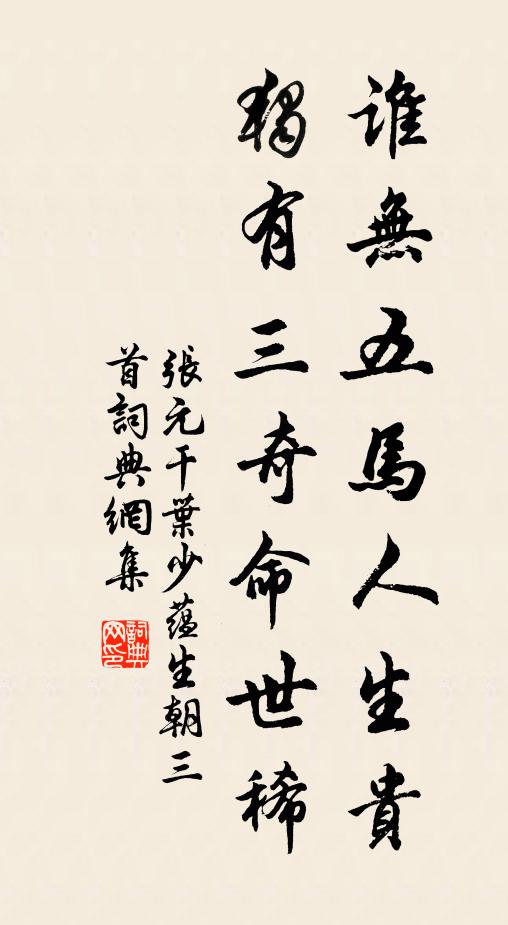 誰無五馬人生貴
獨有三奇命世稀
張元干葉少蘊生朝三
首詞典網集
詞典网印